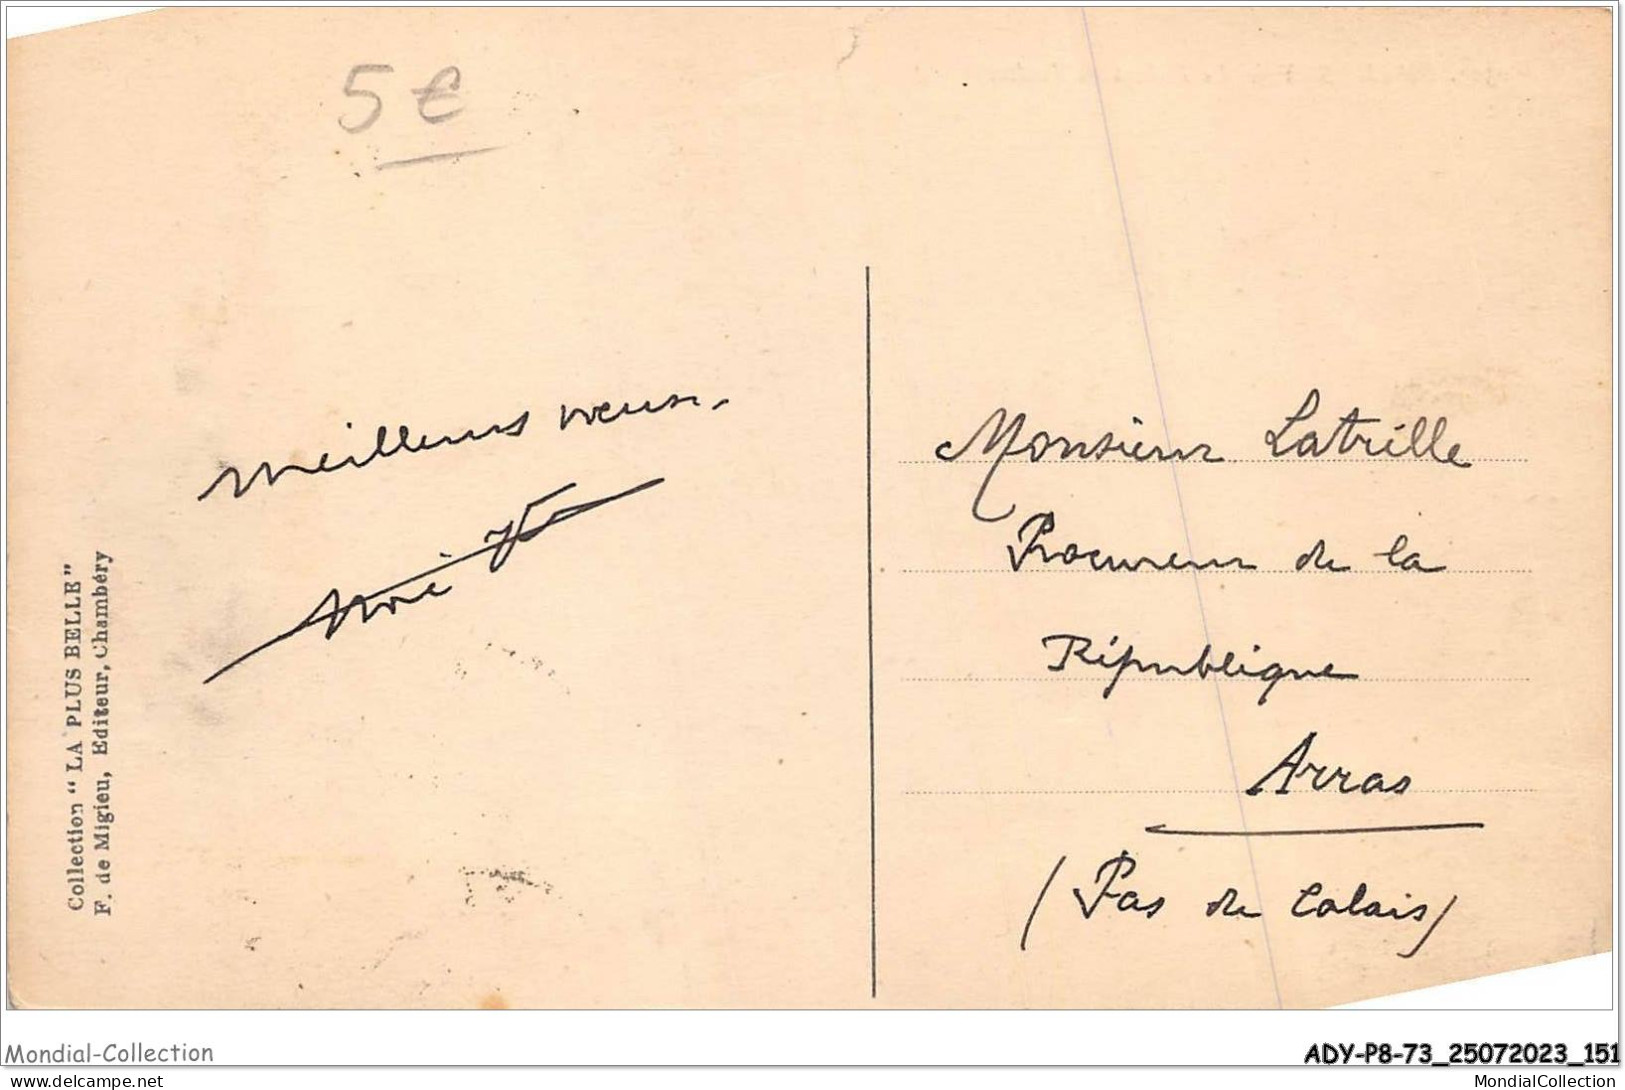 5€
Meilleurs vœux.
Collection "LA PLUS BELLE"
F. de Migieu, Editeur, Chambéry
Monsieur Latrille
Procureur de la
République
Arras
(Pas de Calais)
Mondial-Collection
ADY-P8-73_25072023_151
www.delcampe.net
MondialCollection